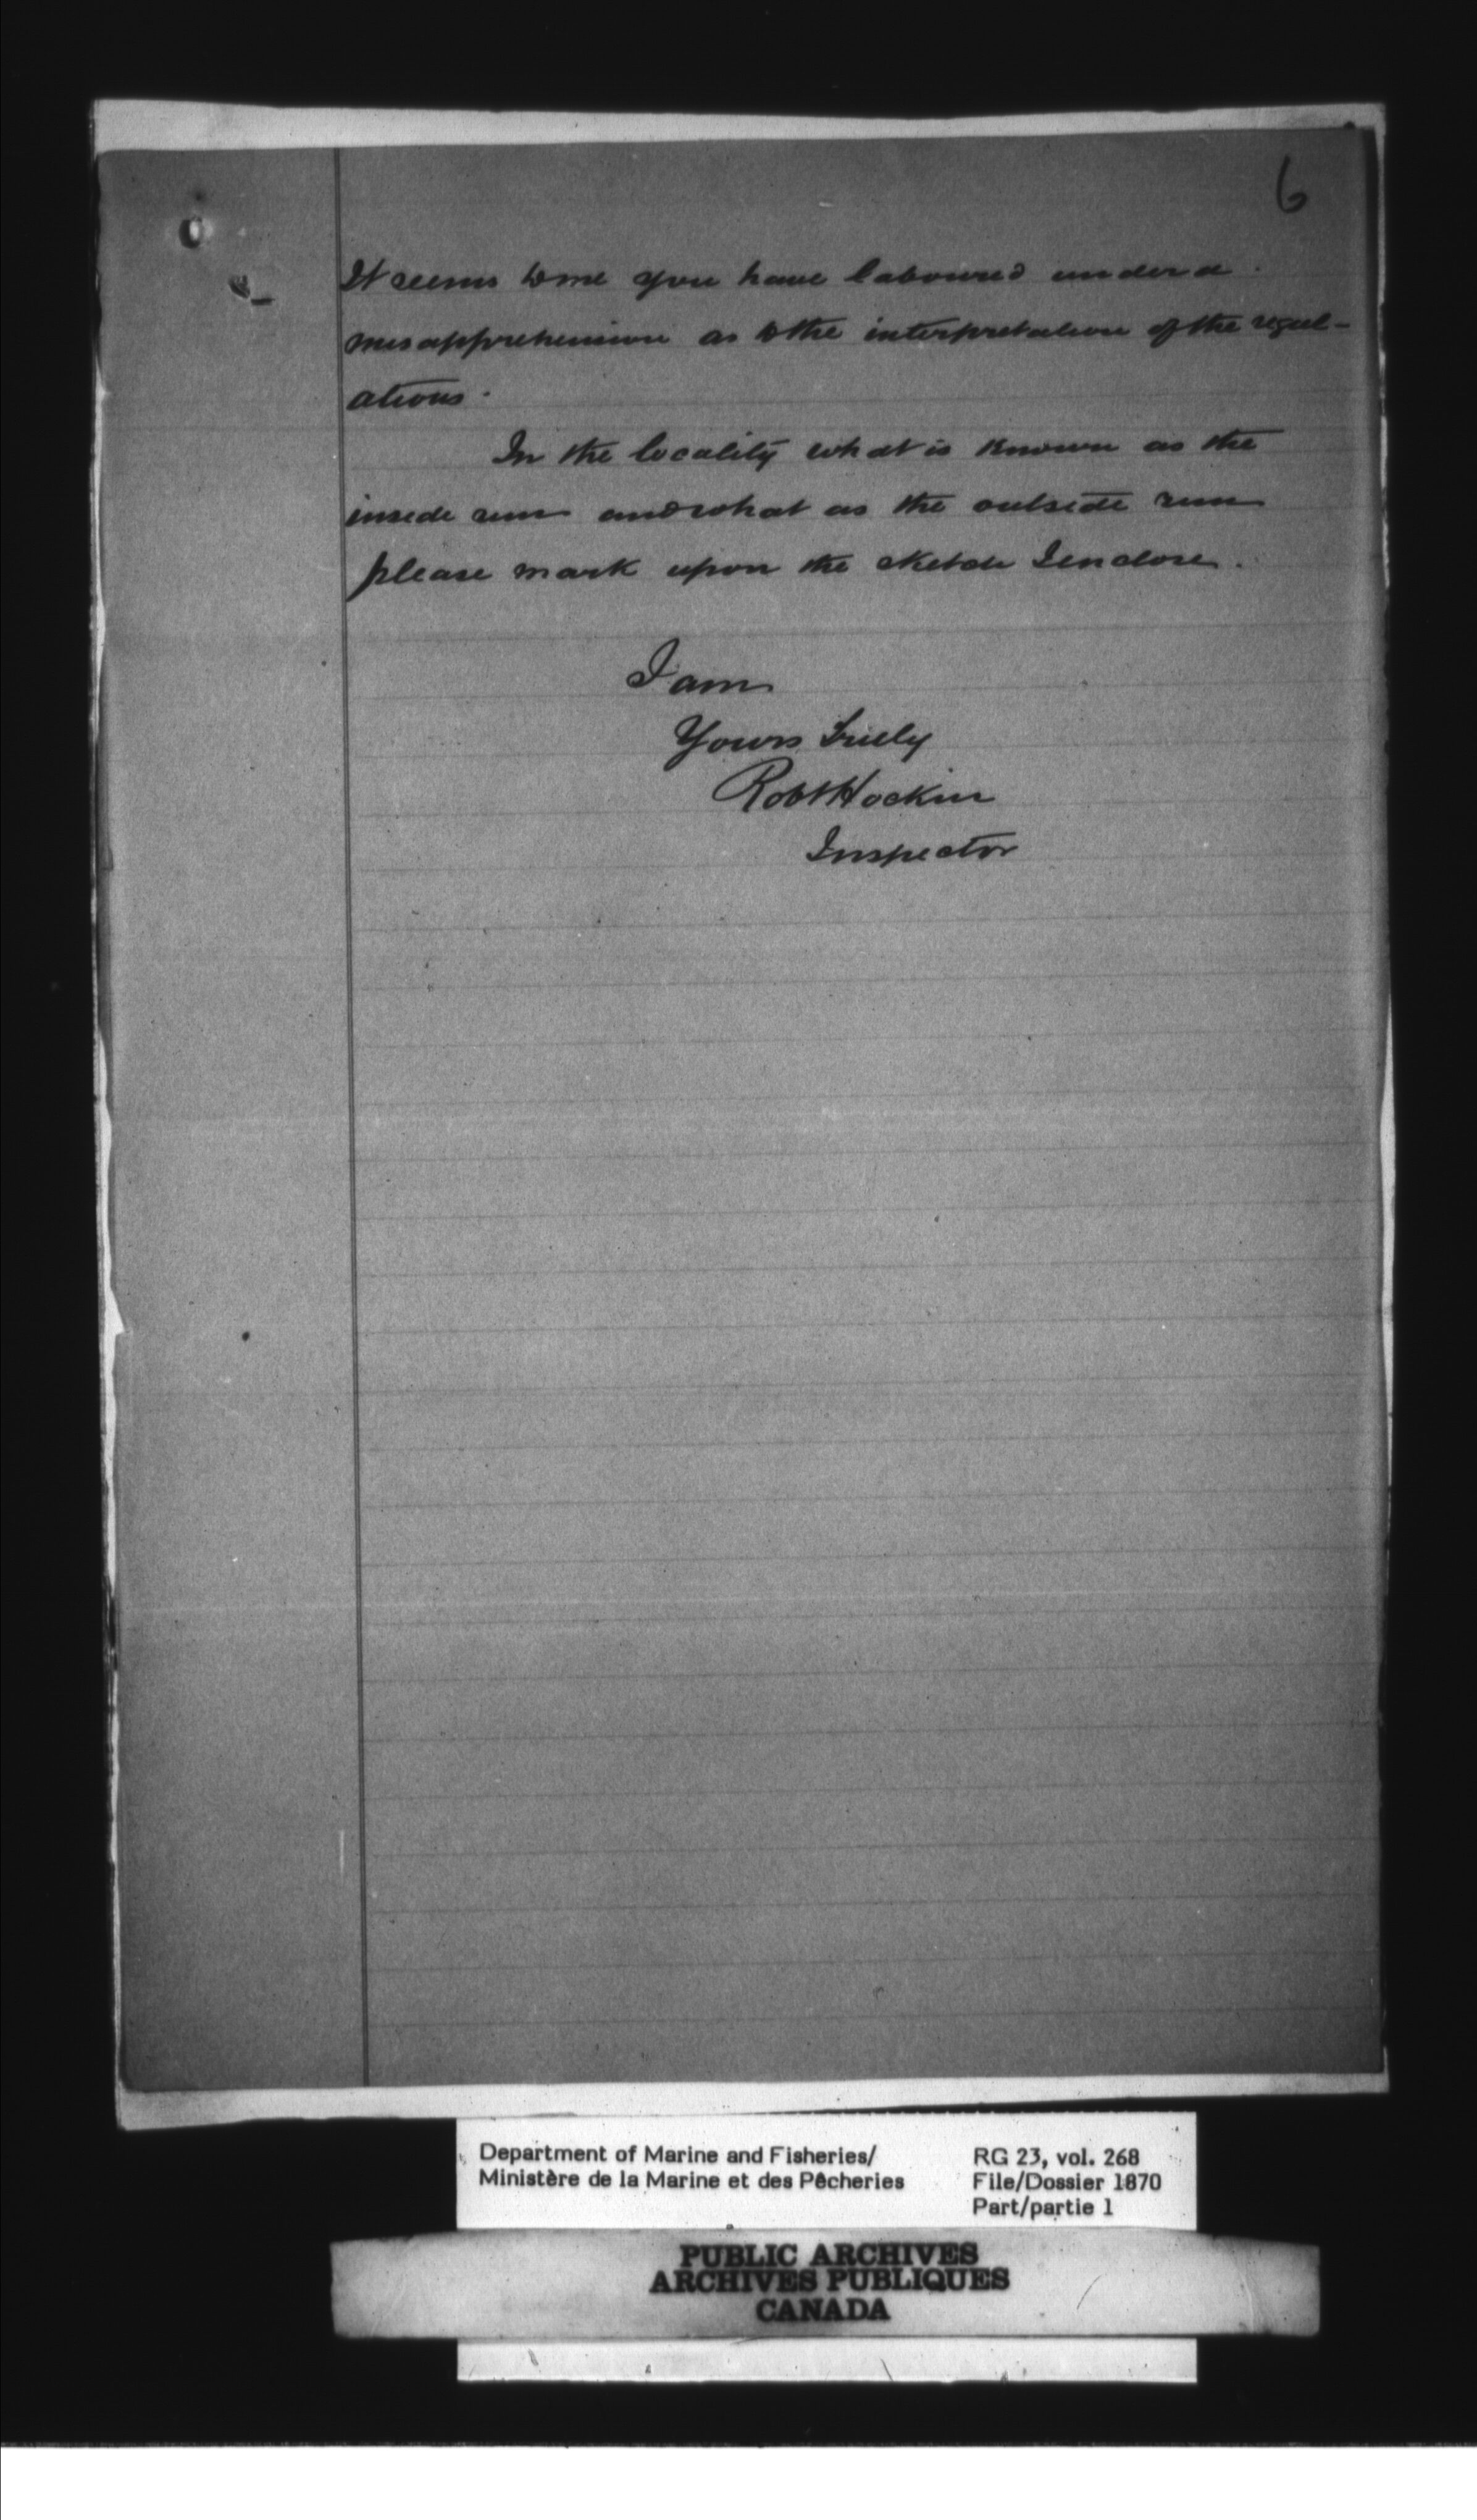 6
It seems to me you have laboured under a
misapprehension as to the interpretation of the regul-
ations.
In the locality what is known as the
inside run and what as the outside run
please mark upon the sketch I enclose.
I am
Yours truly
Robt Hockin
Inspector
Department of Marine and Fisheries/
Ministère de la Marine et des Pêcheries
RG 23, vol. 268
File/Dossier 1870
Part/partie 1
PUBLIC ARCHIVES
ARCHIVES PUBLIQUES
CANADA